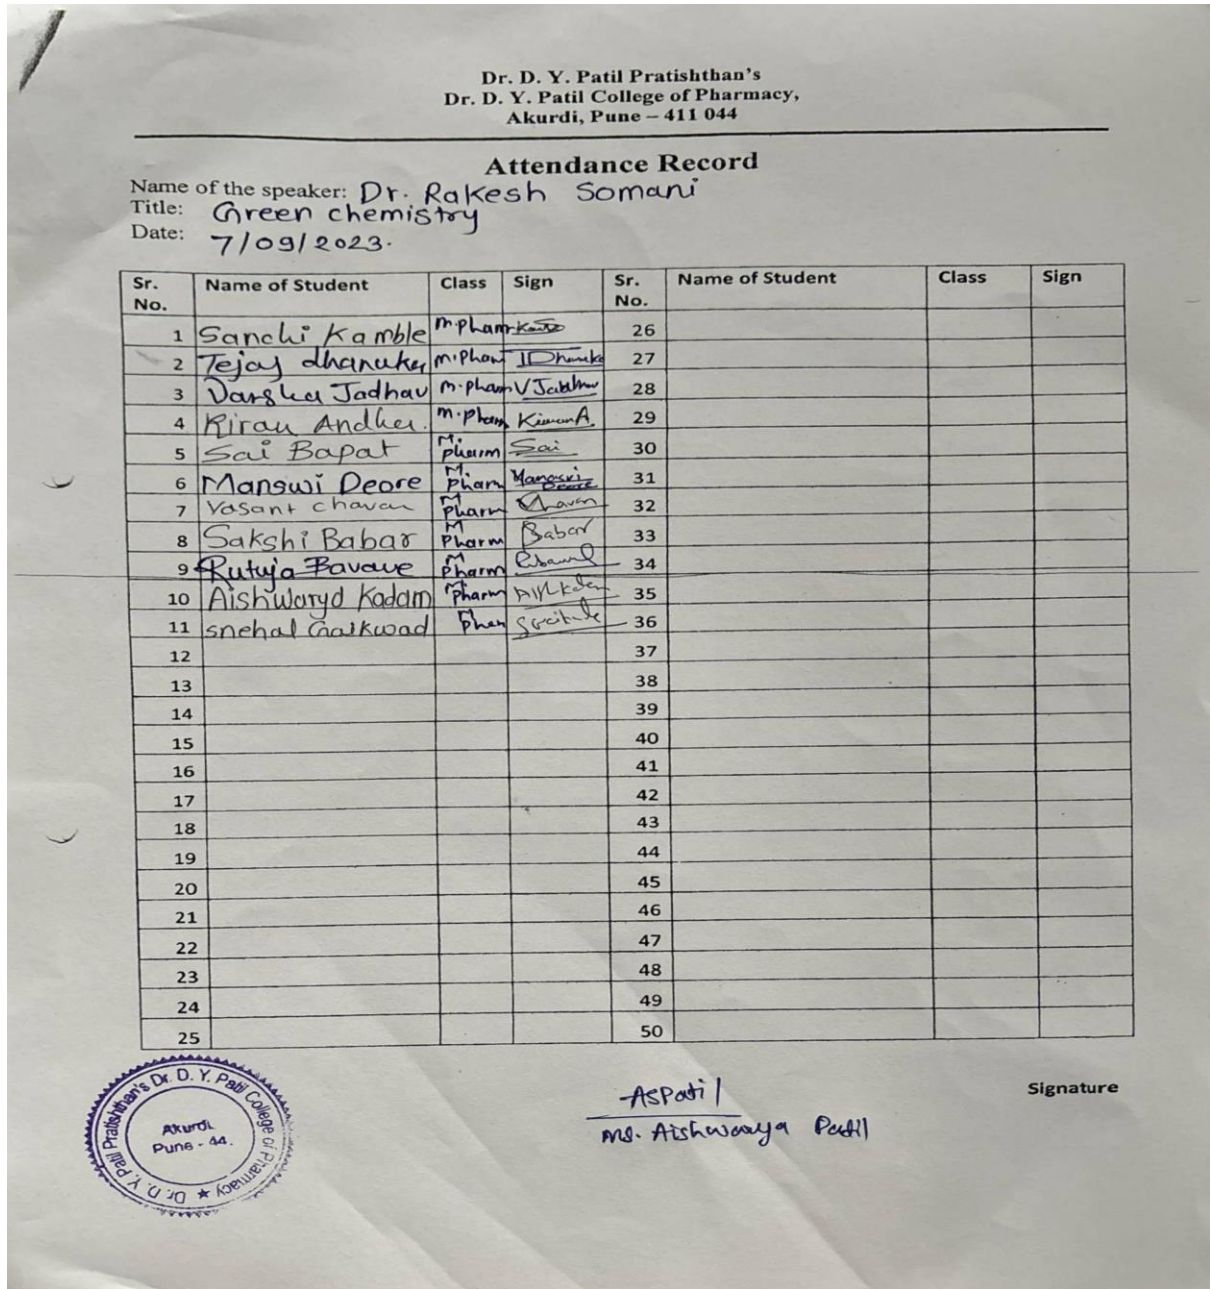 Dr. D. Y. Patil Pratishthan's
Dr. D. Y. Patil College of Pharmacy,
Akurdi, Pune – 411 044
Attendance Record
Name of the speaker: Dr. Rakesh Somani
Title: Green chemistry
Date: 7/09/2023.
Sr. No. Name of Student Class Sign Sr. No. Name of Student Class Sign
1 Sanchi Kamble m.pharm 26
2 Tejas dhanuka m.pharm 27
3 Varsha Jadhav m.pharm V Jadhav 28
4 Kiran Andhe. m.pharm Kiran A. 29
5 Sai Bapat M. pharm Sai 30
6 Manswi Deore M. Pharm Manasvi Deore 31
7 Vasant chavan M Pharm Chavan 32
8 Sakshi Babar M Pharm Babar 33
9 Rutuja Bavave M Pharm 34
10 Aishwarya Kadam Pharm 35
11 snehal Gaikwad 36
12 37
13 38
14 39
15 40
16 41
17 42
18 43
19 44
20 45
21 46
22 47
23 48
24 49
25 50
Signature
ASPatil
Ms. Aishwarya Patil
Dr. D. Y. Patil Pratishthan's Dr. D. Y. Patil College of Pharmacy ★
Akurdi,
Pune - 44.